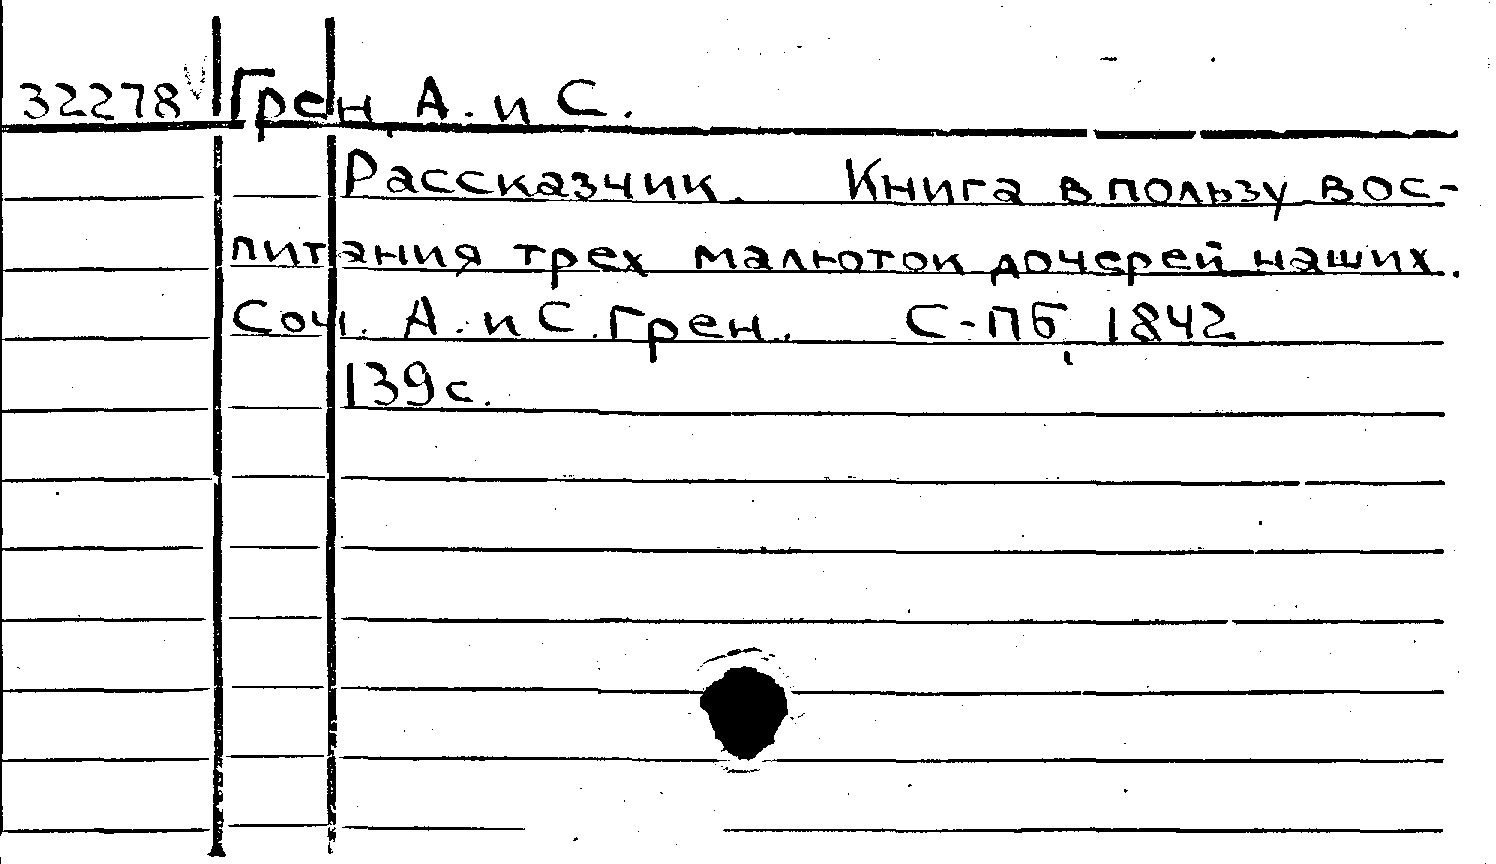 32278 Грен, А. и С.
Рассказчик. Книга в пользу вос-
питания трех малюток дочерей наших.
Соч. А. и С. Грен. С-Пб, 1842
139 с.